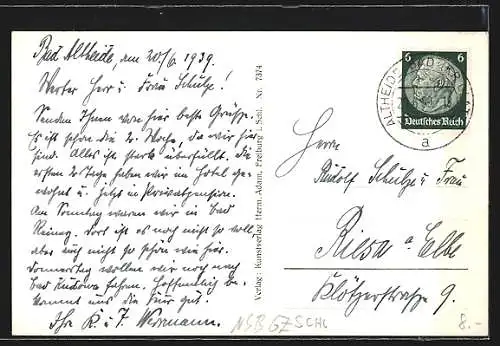 Bad Altheide, am 20./6. 1939.
Werter Herr u. Frau Schulze!
Senden Ihnen von hier beste Grüsse.
Es ist schon die 2. Woche, da wir hier
sind. Alles ist stark überfüllt. Die
ersten 2 Tage haben wir im Hotel ge-
wohnt u. jetzt in Privatpension.
Am Sonntag waren wir in Bad
Reinerz. Dort ist es noch nicht so voll
aber auch nicht so schön wie hier.
Donnerstag wollen wir noch nach
Bad Kudowa fahren. Hoffentlich be-
kommt uns die Kur gut.
Ihr K. u. F. Wermann.
Verlag: Kunstverlag Herm. Adam, Freiburg i. Schl. Nr. 7374
6 6
Deutsches Reich
ALTHEIDE BAD
a
Herrn
Rudolf Schulze u Frau
Riesa a. Elbe
Klötzerstraße 9.
8.-